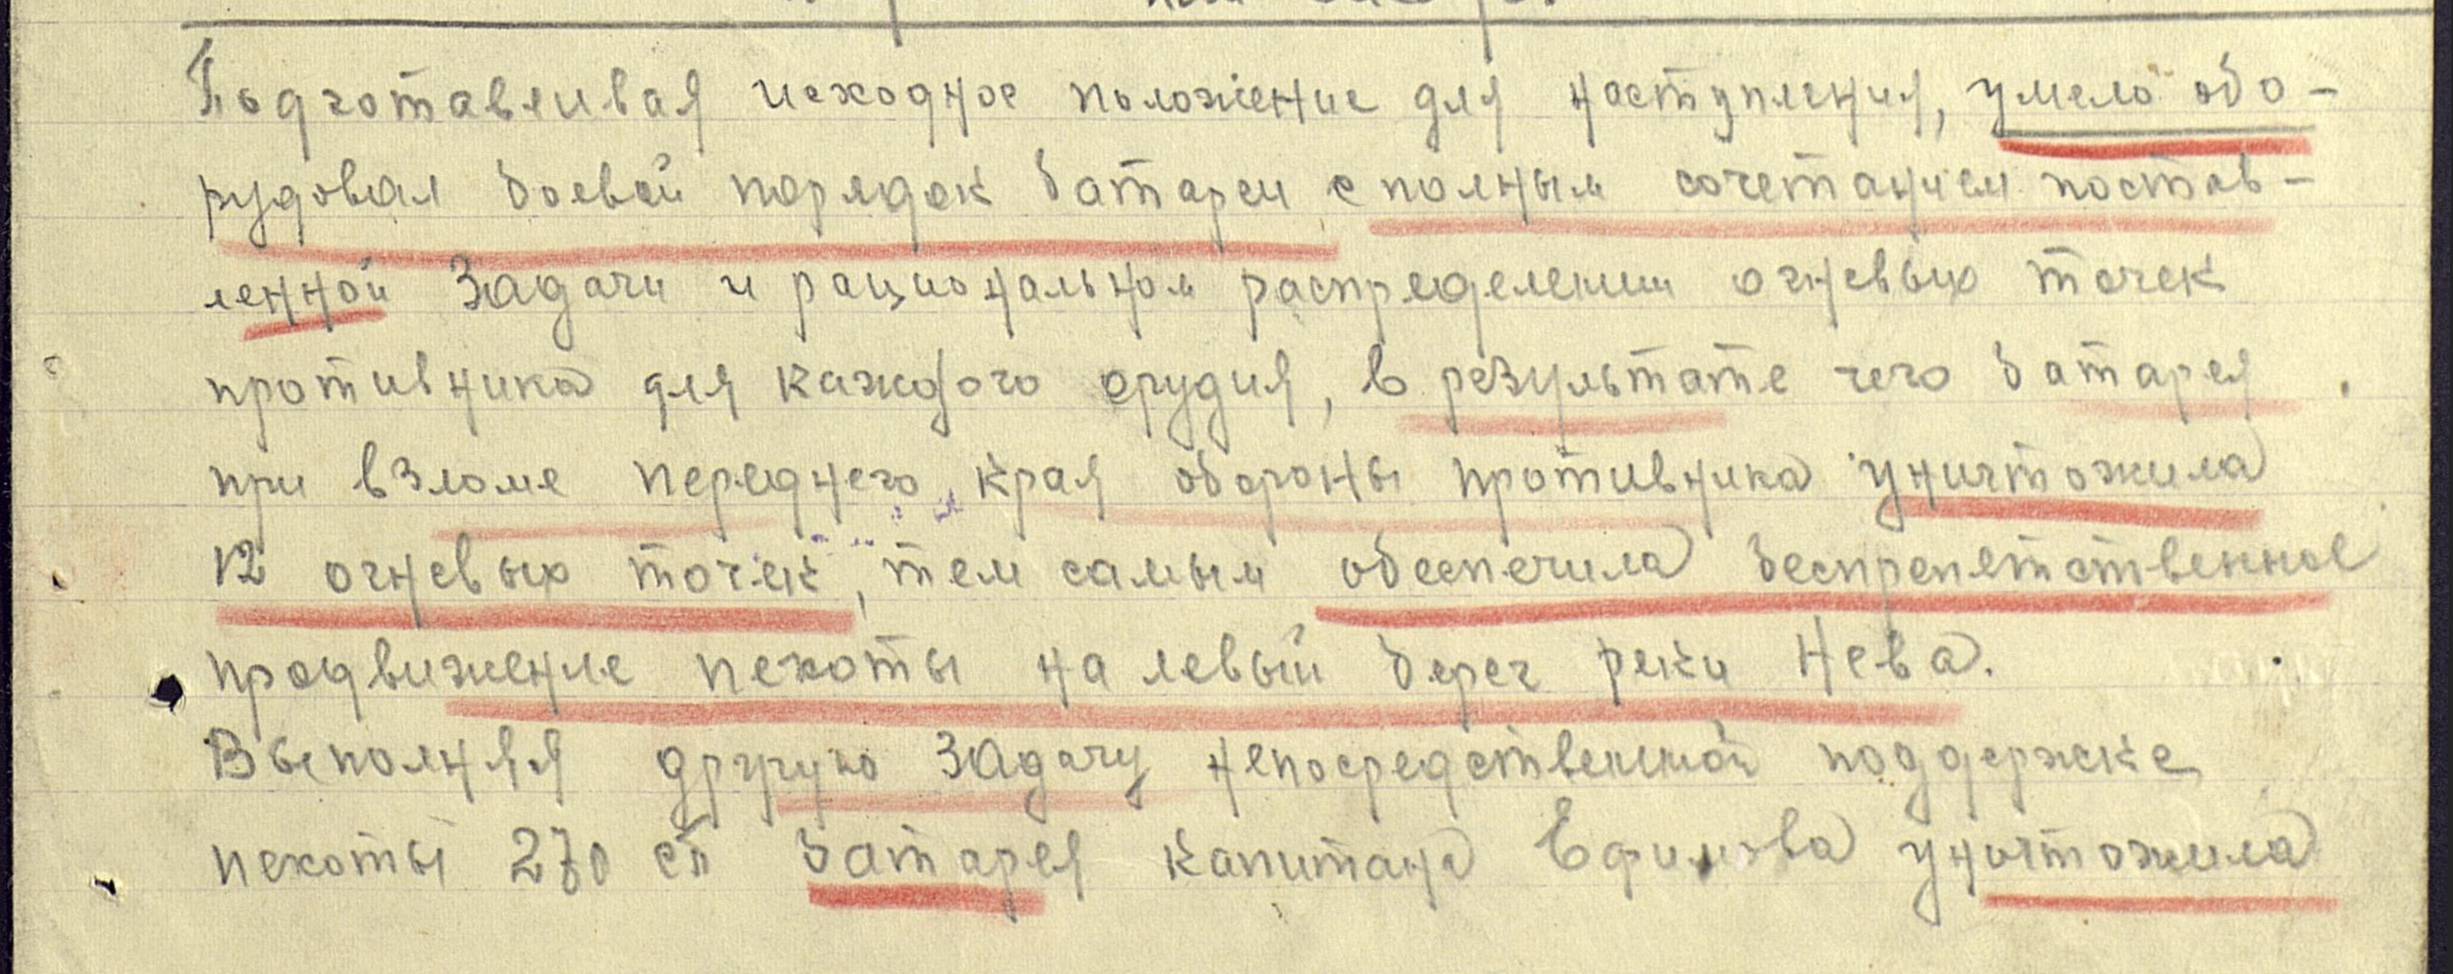 Подготавливая исходное положение для наступления, умело обо-
рудовал боевой порядок батареи с полным сочетанием постав-
ленной задачи и рациональном распределении огневых точек
противника для каждого орудия, в результате чего батарея
при взломе переднего края обороны противника уничтожила
12 огневых точек, тем самым обеспечила беспрепятственное
продвижение пехоты на левый берег реки Нева.
Выполняя другую задачу непосредственной поддержке
пехоты 270 сп батарея капитана Ефимова уничтожила